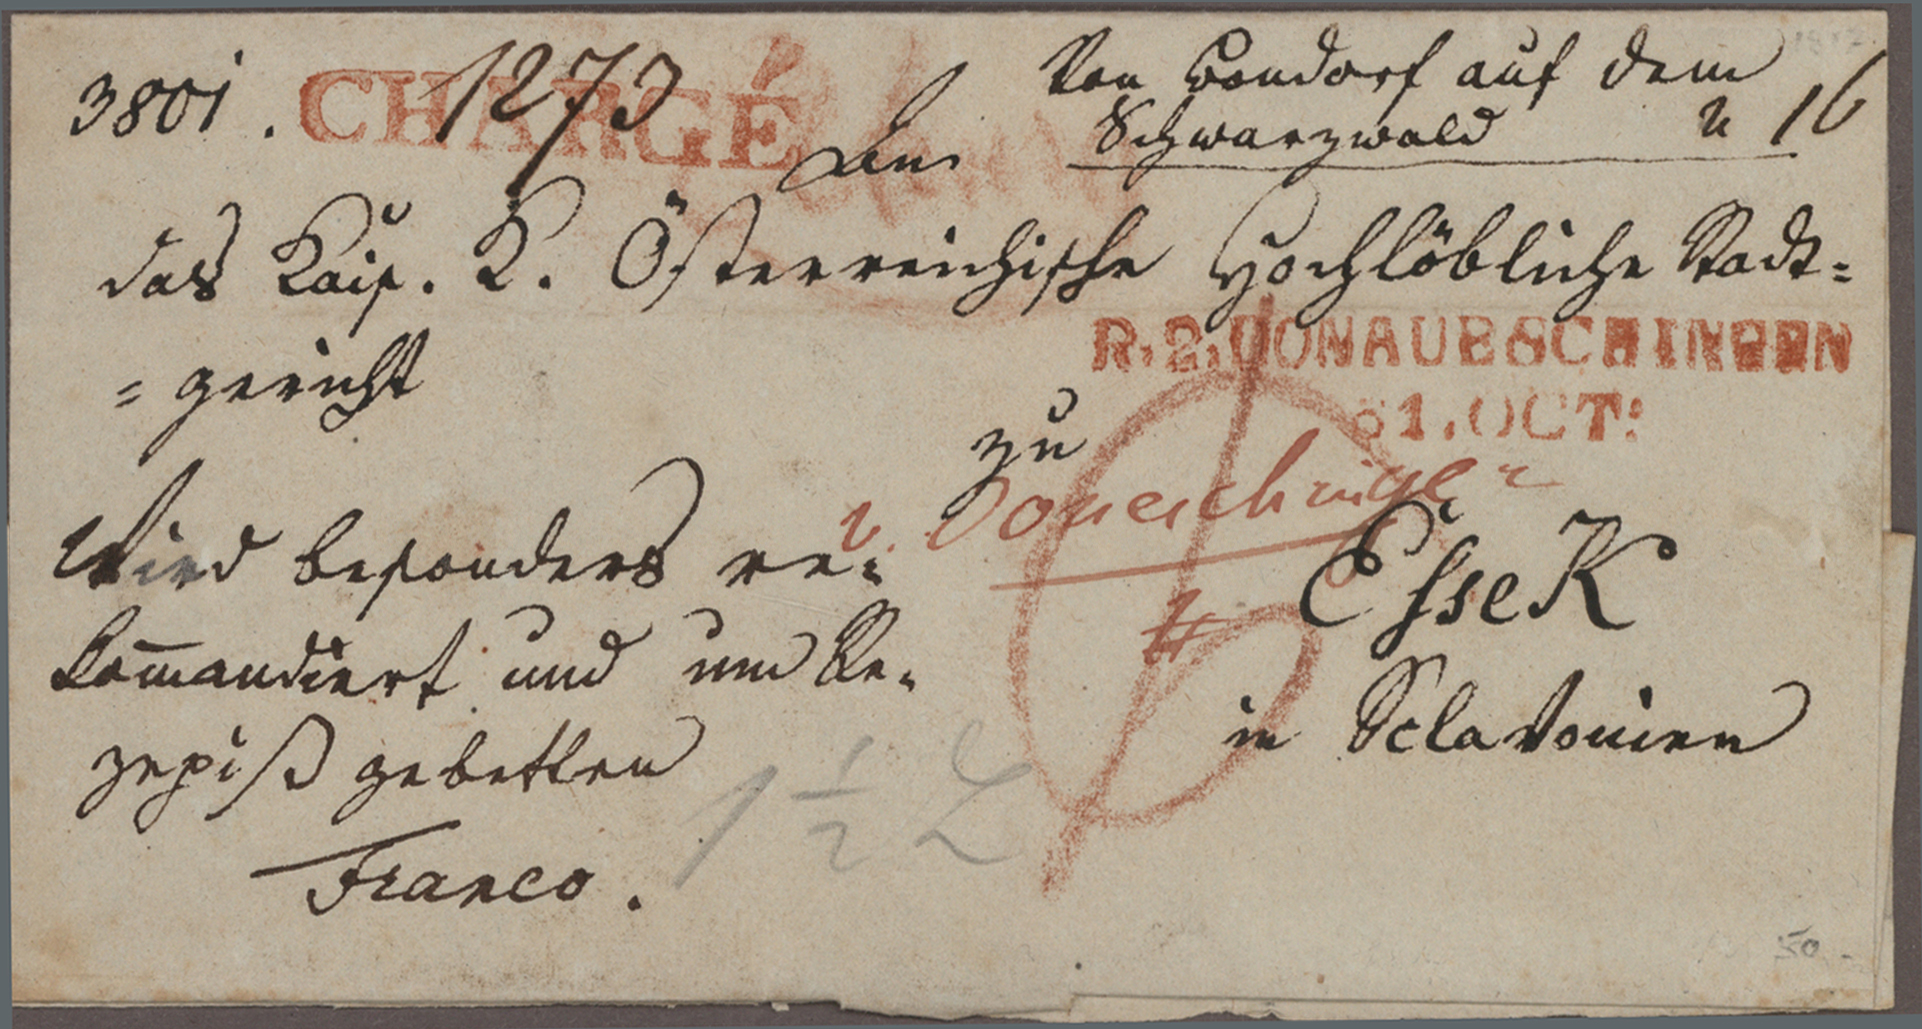 3801. CHARGÉ 1273
Von Bondorf auf dem
Schwarzwald
16
An
das Kais. K. Österreichische Hochlöbliche Stadt=
=gericht
R.2.DONAUESCHINGEN
31.OCT:
zu
v. Doneschingen
Wird besonders re=
kom̄andiert und um Re=
zepiß gebetten
Franco.
Essek
in Sclavonien
1 1/2 L
50